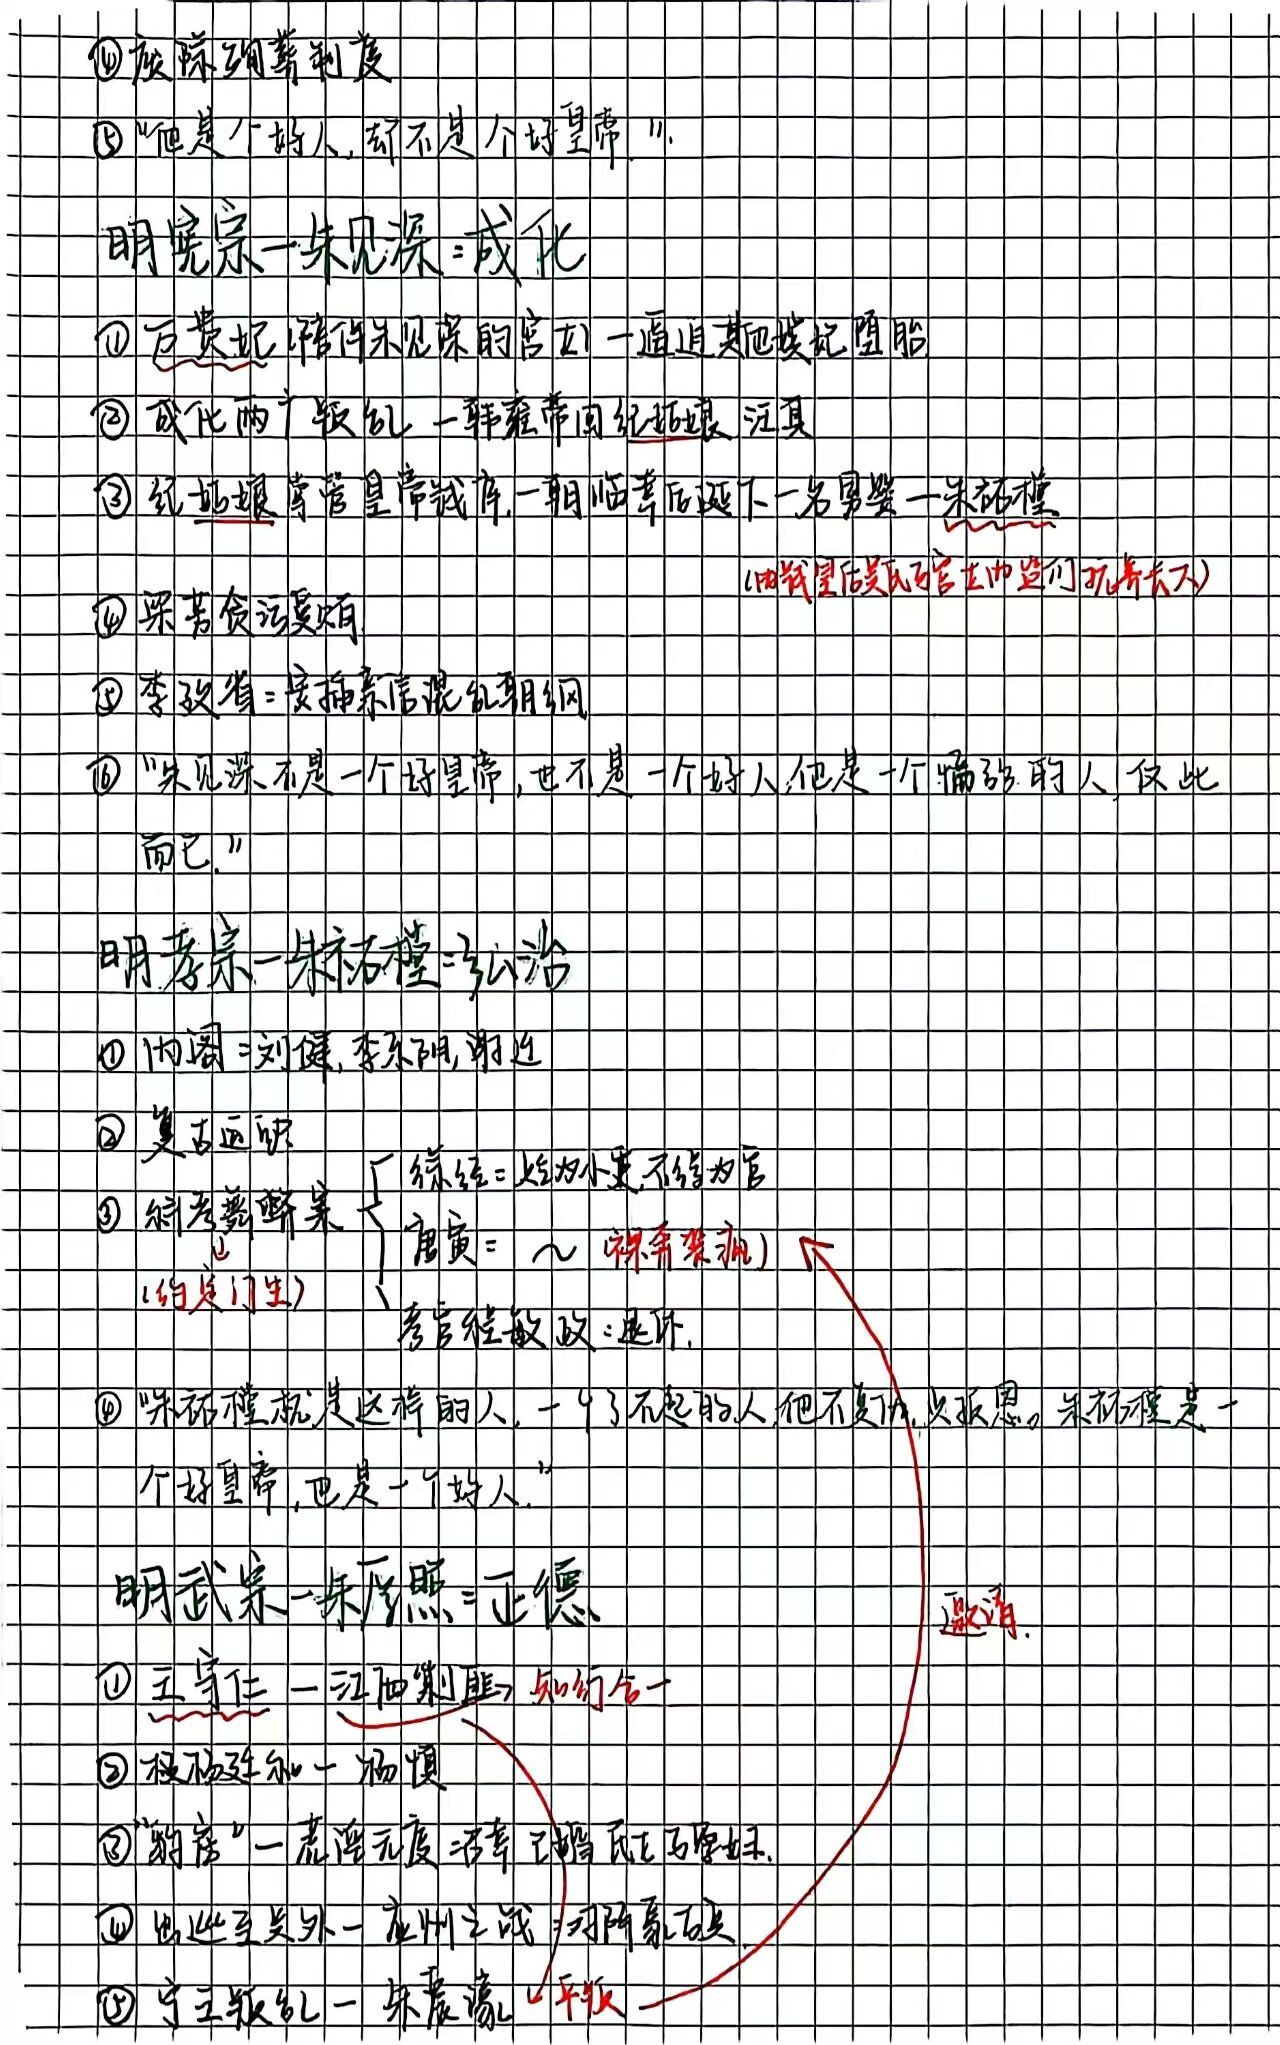 ④废除殉葬制度
⑤“他是个好人，却不是个好皇帝。”
明宪宗—朱见深：成化
①万贵妃（陪伴朱见深的宫女）—逼迫其他嫔妃堕胎
②成化两广叛乱—韩雍带回纪姑娘 汪直
③纪姑娘掌管皇帝钱库，一朝临幸后诞下一名男婴—朱祐樘
（由钱皇后吴氏与宫女内监们抚养长大）
④梁芳贪污
⑤李孜省：安插亲信混乱朝纲
⑥“朱见深不是一个好皇帝，也不是一个好人，他是一个懦弱的人，仅此
而已。”
明孝宗—朱祐樘：弘治
①内阁：刘健，李东阳，谢迁
②复古运动
③科考舞弊案
（约定门生）
徐经：贬为小吏，不得为官
唐寅：～（裸奔装疯）
考官程敏政：退休.
④“朱祐樘就是这样的人，一个了不起的人，他不复仇，只报恩。朱祐樘是一
个好皇帝，也是一个好人。”
明武宗—朱厚照：正德
邀请.
①王守仁—江西剿匪，知行合一
②杨廷和—杨慎
③“豹房”—荒淫无度 宠幸已婚民女与孕妇.
④出巡至关外—应州之战：对阵蒙古兵.
⑤宁王叛乱—朱宸濠 平叛